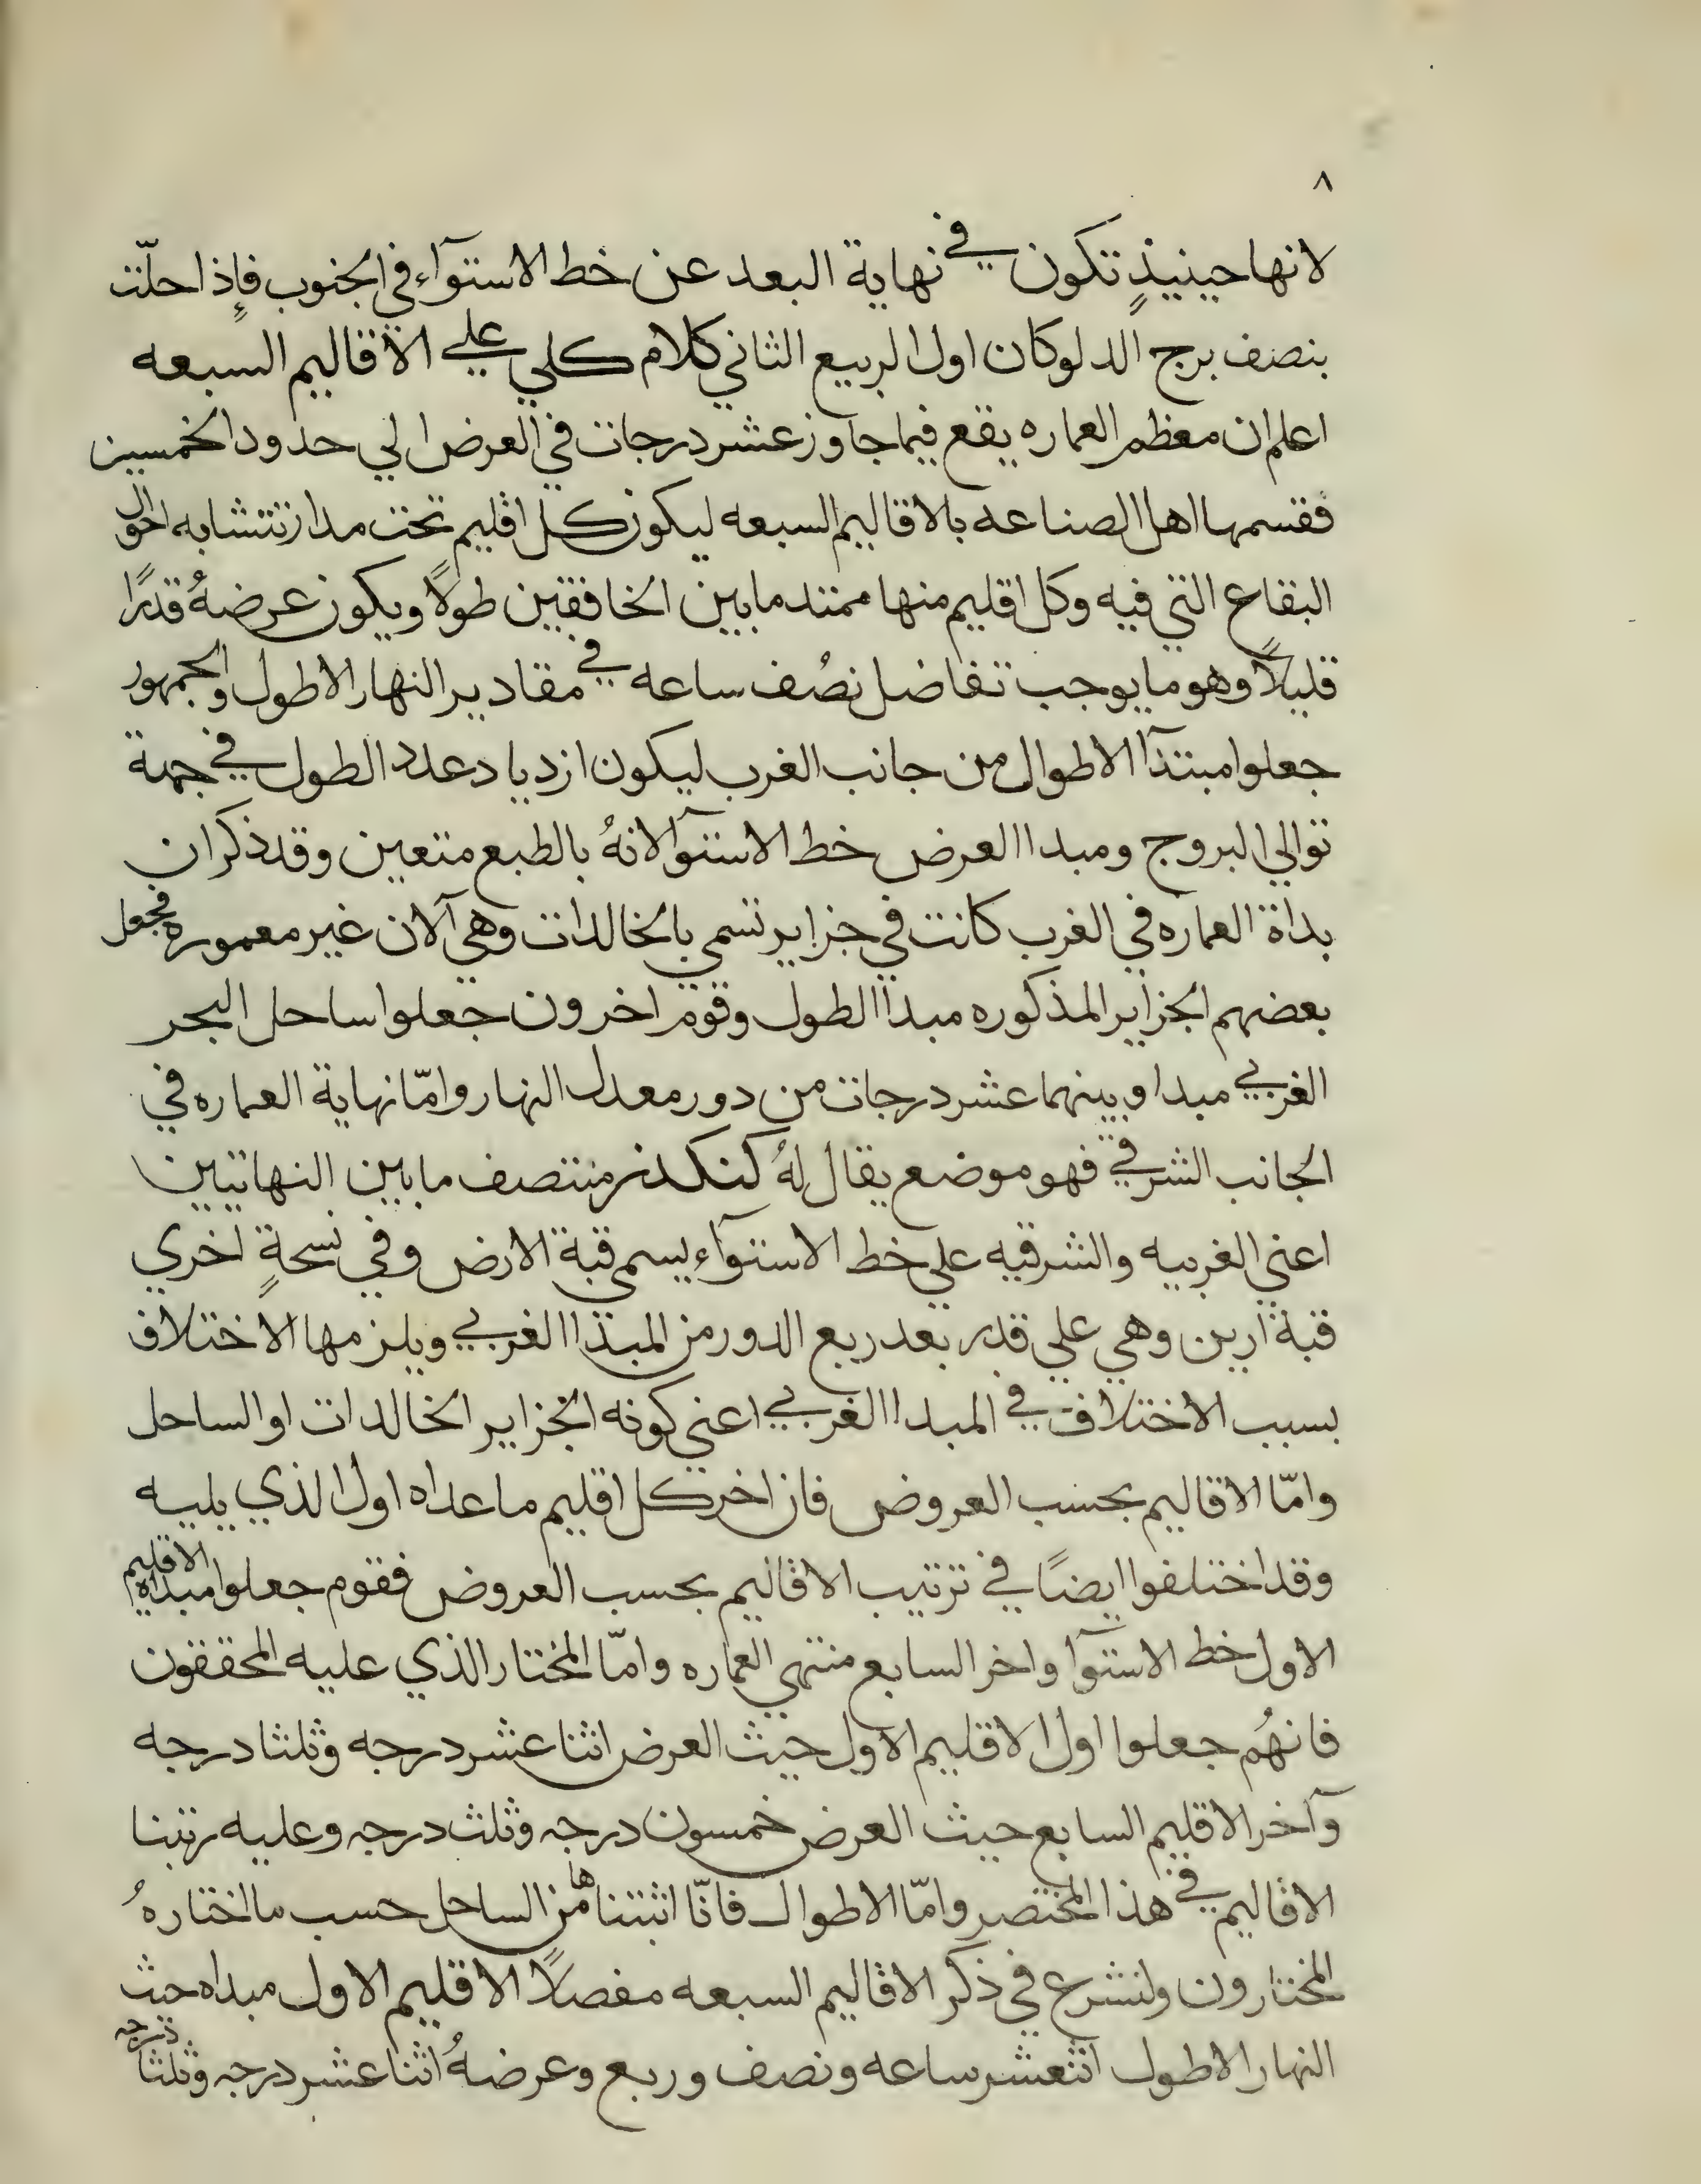 ٨
لانها حينيذٍ تكون في نهاية البعد عن خط الاستوآء في الجنوب فإذا حلّت
بنصف برج الدلو كان اول الربيع الثاني كلام كلي علي الاقاليم السبعه
اعلم ان معظم العماره يقع فيما جاوز عشر درجات في العرض الي حدود الخمسين
فقسمها اهل الصناعه بالاقاليم السبعه ليكون كل اقليم تحت مدار تتشابه احوال
البقاع التي فيه وكل اقليم منها ممتد ما بين الخافقين طولًا ويكون عرضهُ قدرًا
قليلًا وهو ما يوجب تفاضل نصُف ساعه في مقادير النهار الاطول والجمهور
جعلوا مبتدآ الاطوال من جانب الغرب ليكون ازدياد عدد الطول في جهة
توالي البروج ومبدا العرض خط الاستوآ لانهُ بالطبع متعين وقد ذكر ان
بداة العماره في الغرب كانت في جزاير تسمي بالخالدات وهي آلان غير معموره فجعل
بعضهم الجزاير المذكوره مبدا الطول وقوم اخرون جعلوا ساحل البحر
الغربي مبدا وبينهما عشر درجات من دور معدل النهار وامّا نهاية العماره في
الجانب الشرقي فهو موضع يقال لهُ كنكدز منتصف ما بين النهايتين
اعني الغربيه والشرقيه علي خط الاستوآء يسمي قبة الارض وفي نسخةٍ اخري
قبة ارين وهي علي قدر بعد ربع الدور من المبدا الغربي ويلزمها الاختلاف
بسبب الاختلاف في المبدا الغربي اعني كونه الجزاير الخالدات او الساحل
وامّا الاقاليم بحسب العروض فان اخر كل اقليم ما عداه اول الذي يليه
وقد اختلفوا ايضًا في ترتيب الاقاليم بحسب العروض فقوم جعلوا مبداه الاقليم
الاول خط الاستوآ واخر السابع منتهي العماره وامّا المختار الذي عليه المحققون
فانهُم جعلوا اول الاقليم الاول حيث العرض اثنا عشر درجه وثلثا درجه
وآخر الاقليم السابع حيث العرض خمسون درجه وثلث درجه وعليه رتبنا
الاقاليم في هذا المختصر وامّا الاطوال فانّا اثبتناها من الساحل حسب ما اختارهُ
المختارون ولنشرع في ذكر الاقاليم السبعه مفصلًا الاقليم الاول مبداه حيث
النهار الاطول اثنعشر ساعه ونصف وربع وعرضهُ اثنا عشر درجه وثلثا درجه